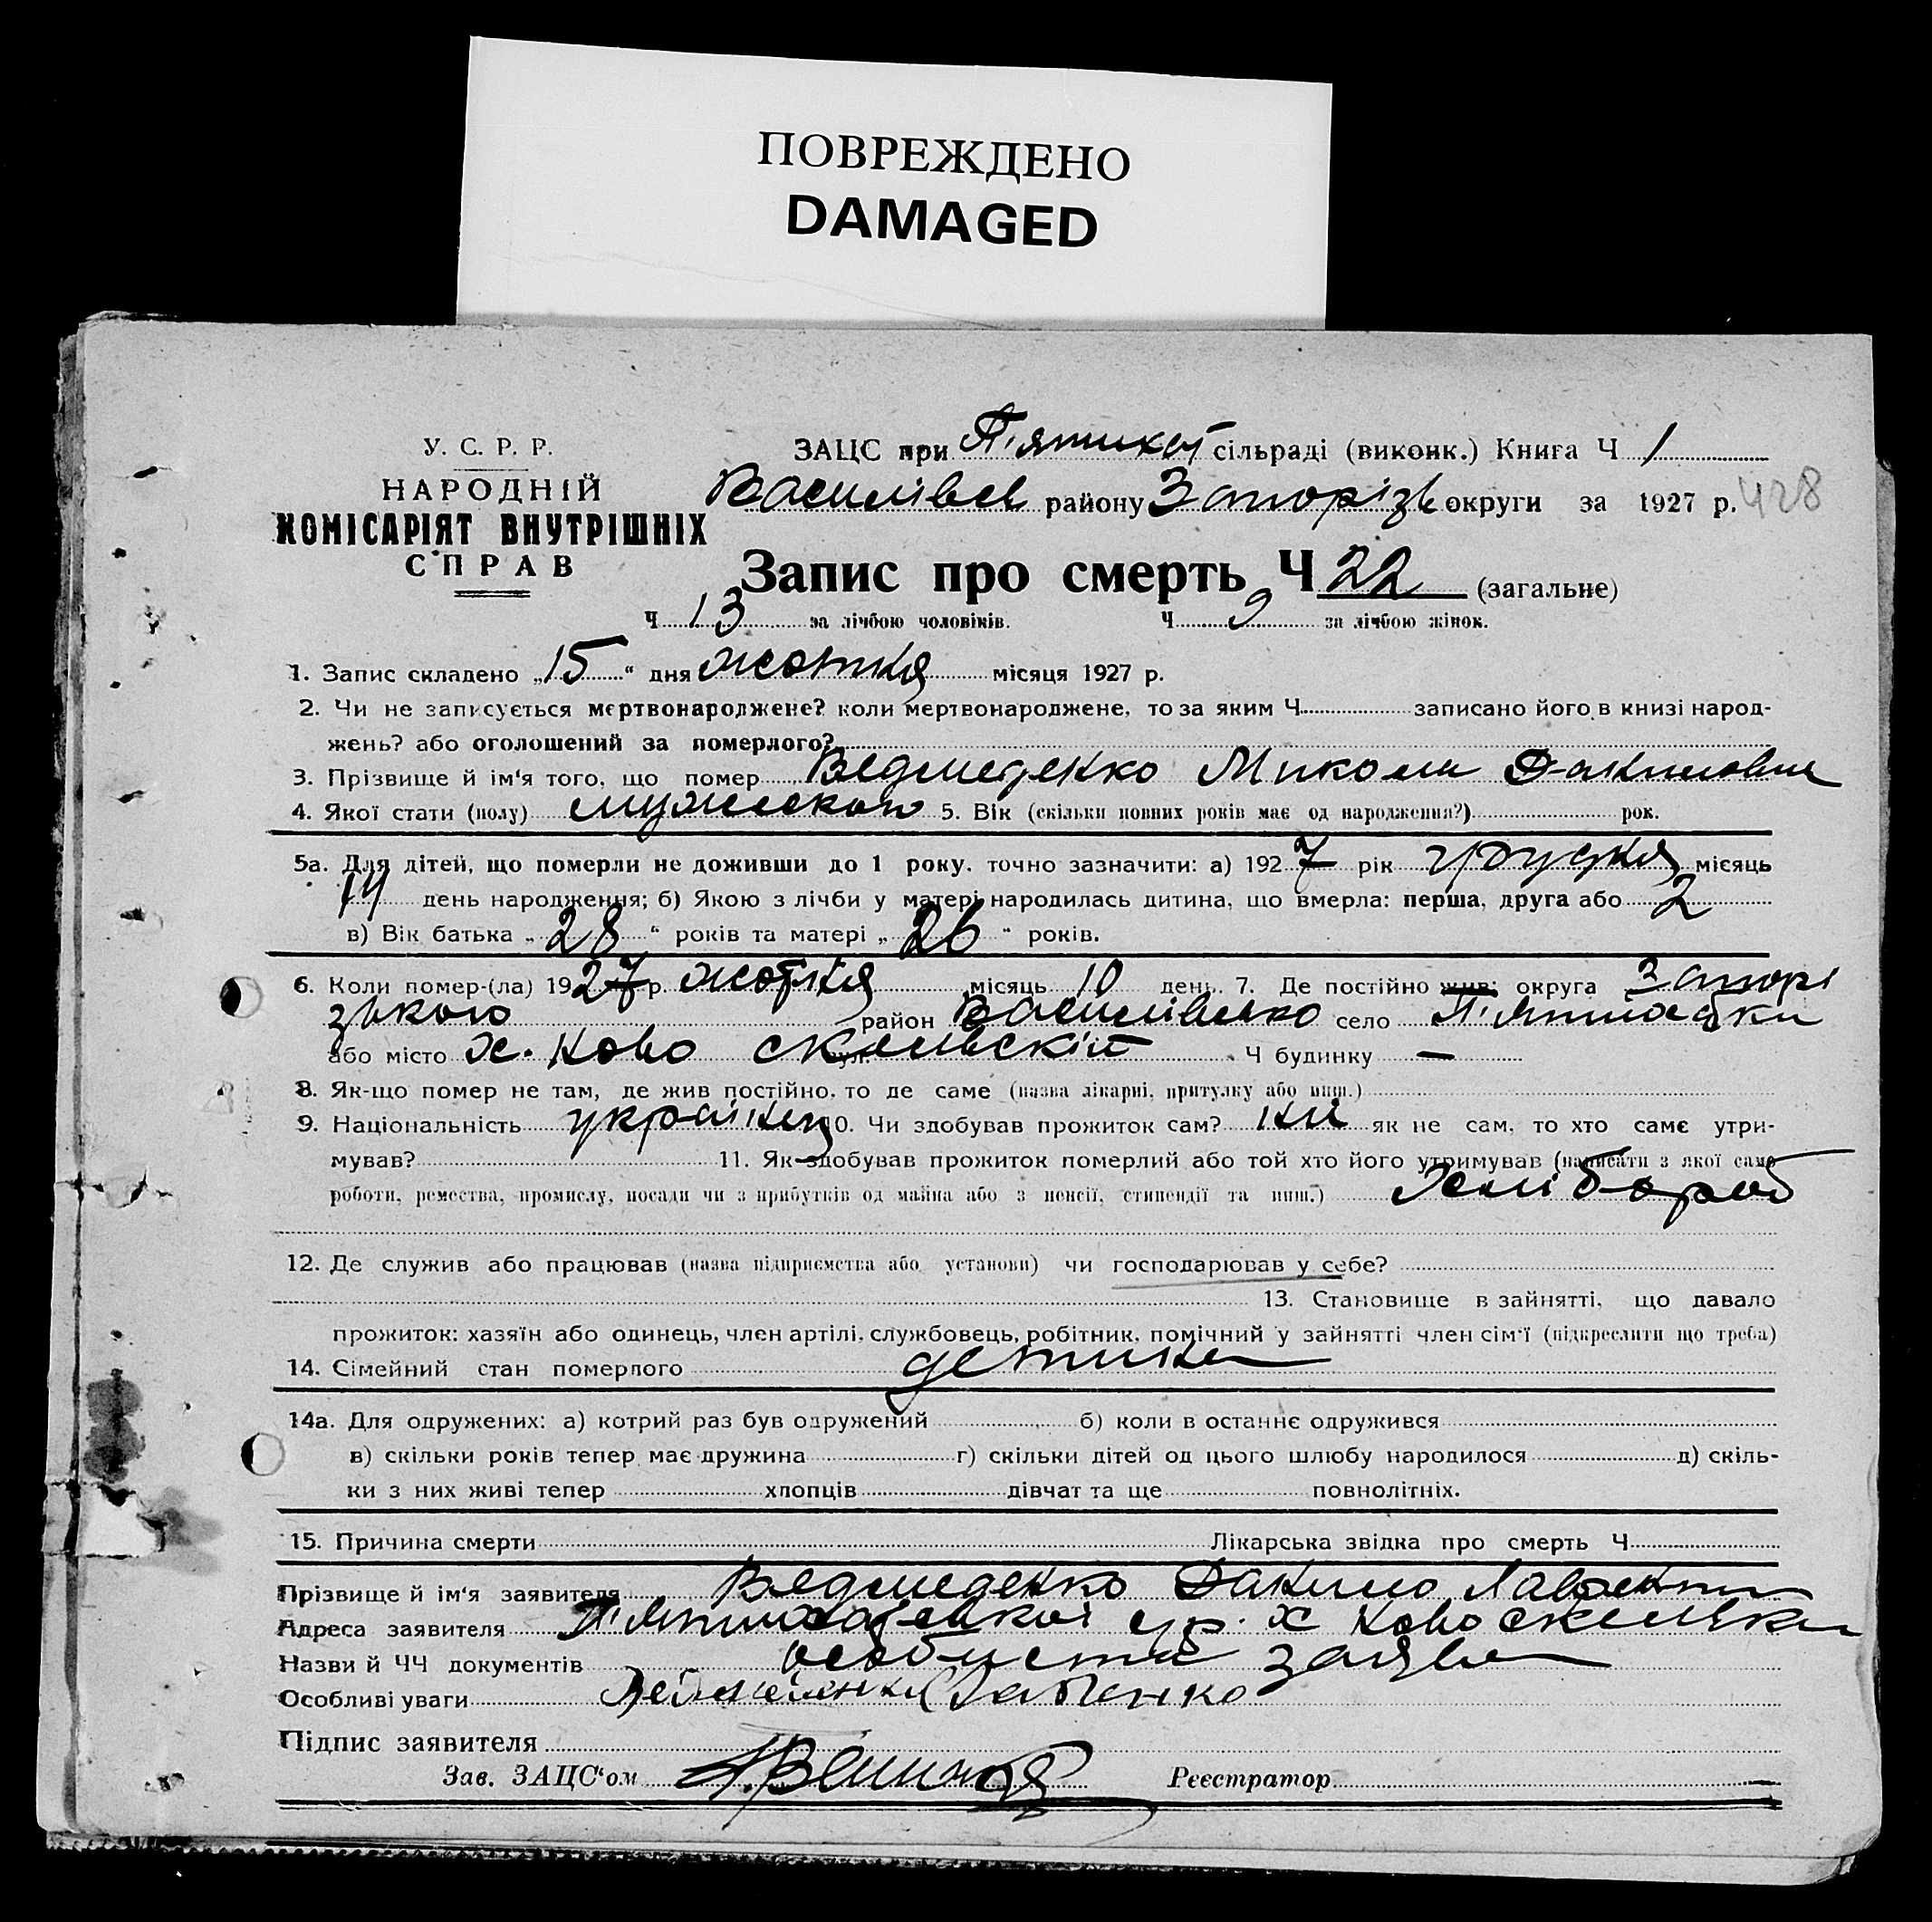 ПОВРЕЖДЕНО
DAMAGED
У. С. Р. Р.
НАРОДНІЙ
КОМІСАРІЯТ ВНУТРІШНІХ
СПРАВ
ЗАЦС при П'ятихат сільраді (виконк.) Книга Ч 1
Василівск району Запорізьк округи за 1927 р. 428
Запис про смерть Ч 22 (загальне)
Ч 13 за лічбою чоловіків. Ч 9 за лічбою жінок.
1. Запис складено „15“ дня жовтня місяця 1927 р.
2. Чи не записується мертвонароджене? коли мертвонароджене, то за яким Ч записано його в книзі народ-
жень? або оголошений за померлого?
3. Прізвище й ім'я того, що помер Ведмеденко Микола Данилович
4. Якої стати (полу) мужеского 5. Вік (скільки повних років має од народження?) рок.
5а. Для дітей, що померли не доживши до 1 року, точно зазначити: а) 1927 рік грудня місяць
14 день народження; б) Якою з лічби у матері народилась дитина, що вмерла: перша, друга або 2
в) Вік батька „28“ років та матері „26“ років.
6. Коли помер-(ла) 1927 р. жовтня місяць 10 день. 7. Де постійно жив: округа Запорі
зького район Василівсько село П'ятихатки
або місто х. Ново вул. Ч будинку —
8. Як-що помер не там, де жив постійно, то де саме (назва лікарні, притулку або инш.)
9. Національність українец 10. Чи здобував прожиток сам? ні як не сам, то хто саме утри-
мував? 11. Як здобував прожиток померлий або той хто його утримував (написати з якої само
роботи, ремества, промислу, посади чи з прибутків од майна або з пенсії, стипендії та инш.) Хлібороб
12. Де служив або працював (назва підприємства або установи) чи господарював у себе?
13. Становище в зайнятті, що давало
прожиток: хазяїн або одинець, член артілі, службовець, робітник, помічний у зайнятті член сім'ї (підкреслити що треба)
14. Сімейний стан померлого детина
14а. Для одружених: а) котрий раз був одружений б) коли в останнє одружився
в) скільки років тепер має дружина г) скільки дітей од цього шлюбу народилося д) скіль-
ки з них живі тепер хлопців дівчат та ще повнолітніх.
15. Причина смерти Лікарська звідка про смерть Ч
Прізвище й ім'я заявителя Ведмеденко Данило
Адреса заявителя П'ятихатської с/р. х Ново
Назви й ЧЧ документів особиста заява
Особливі уваги
Підпис заявителя
Зав. ЗАЦС'ом Реєстратор